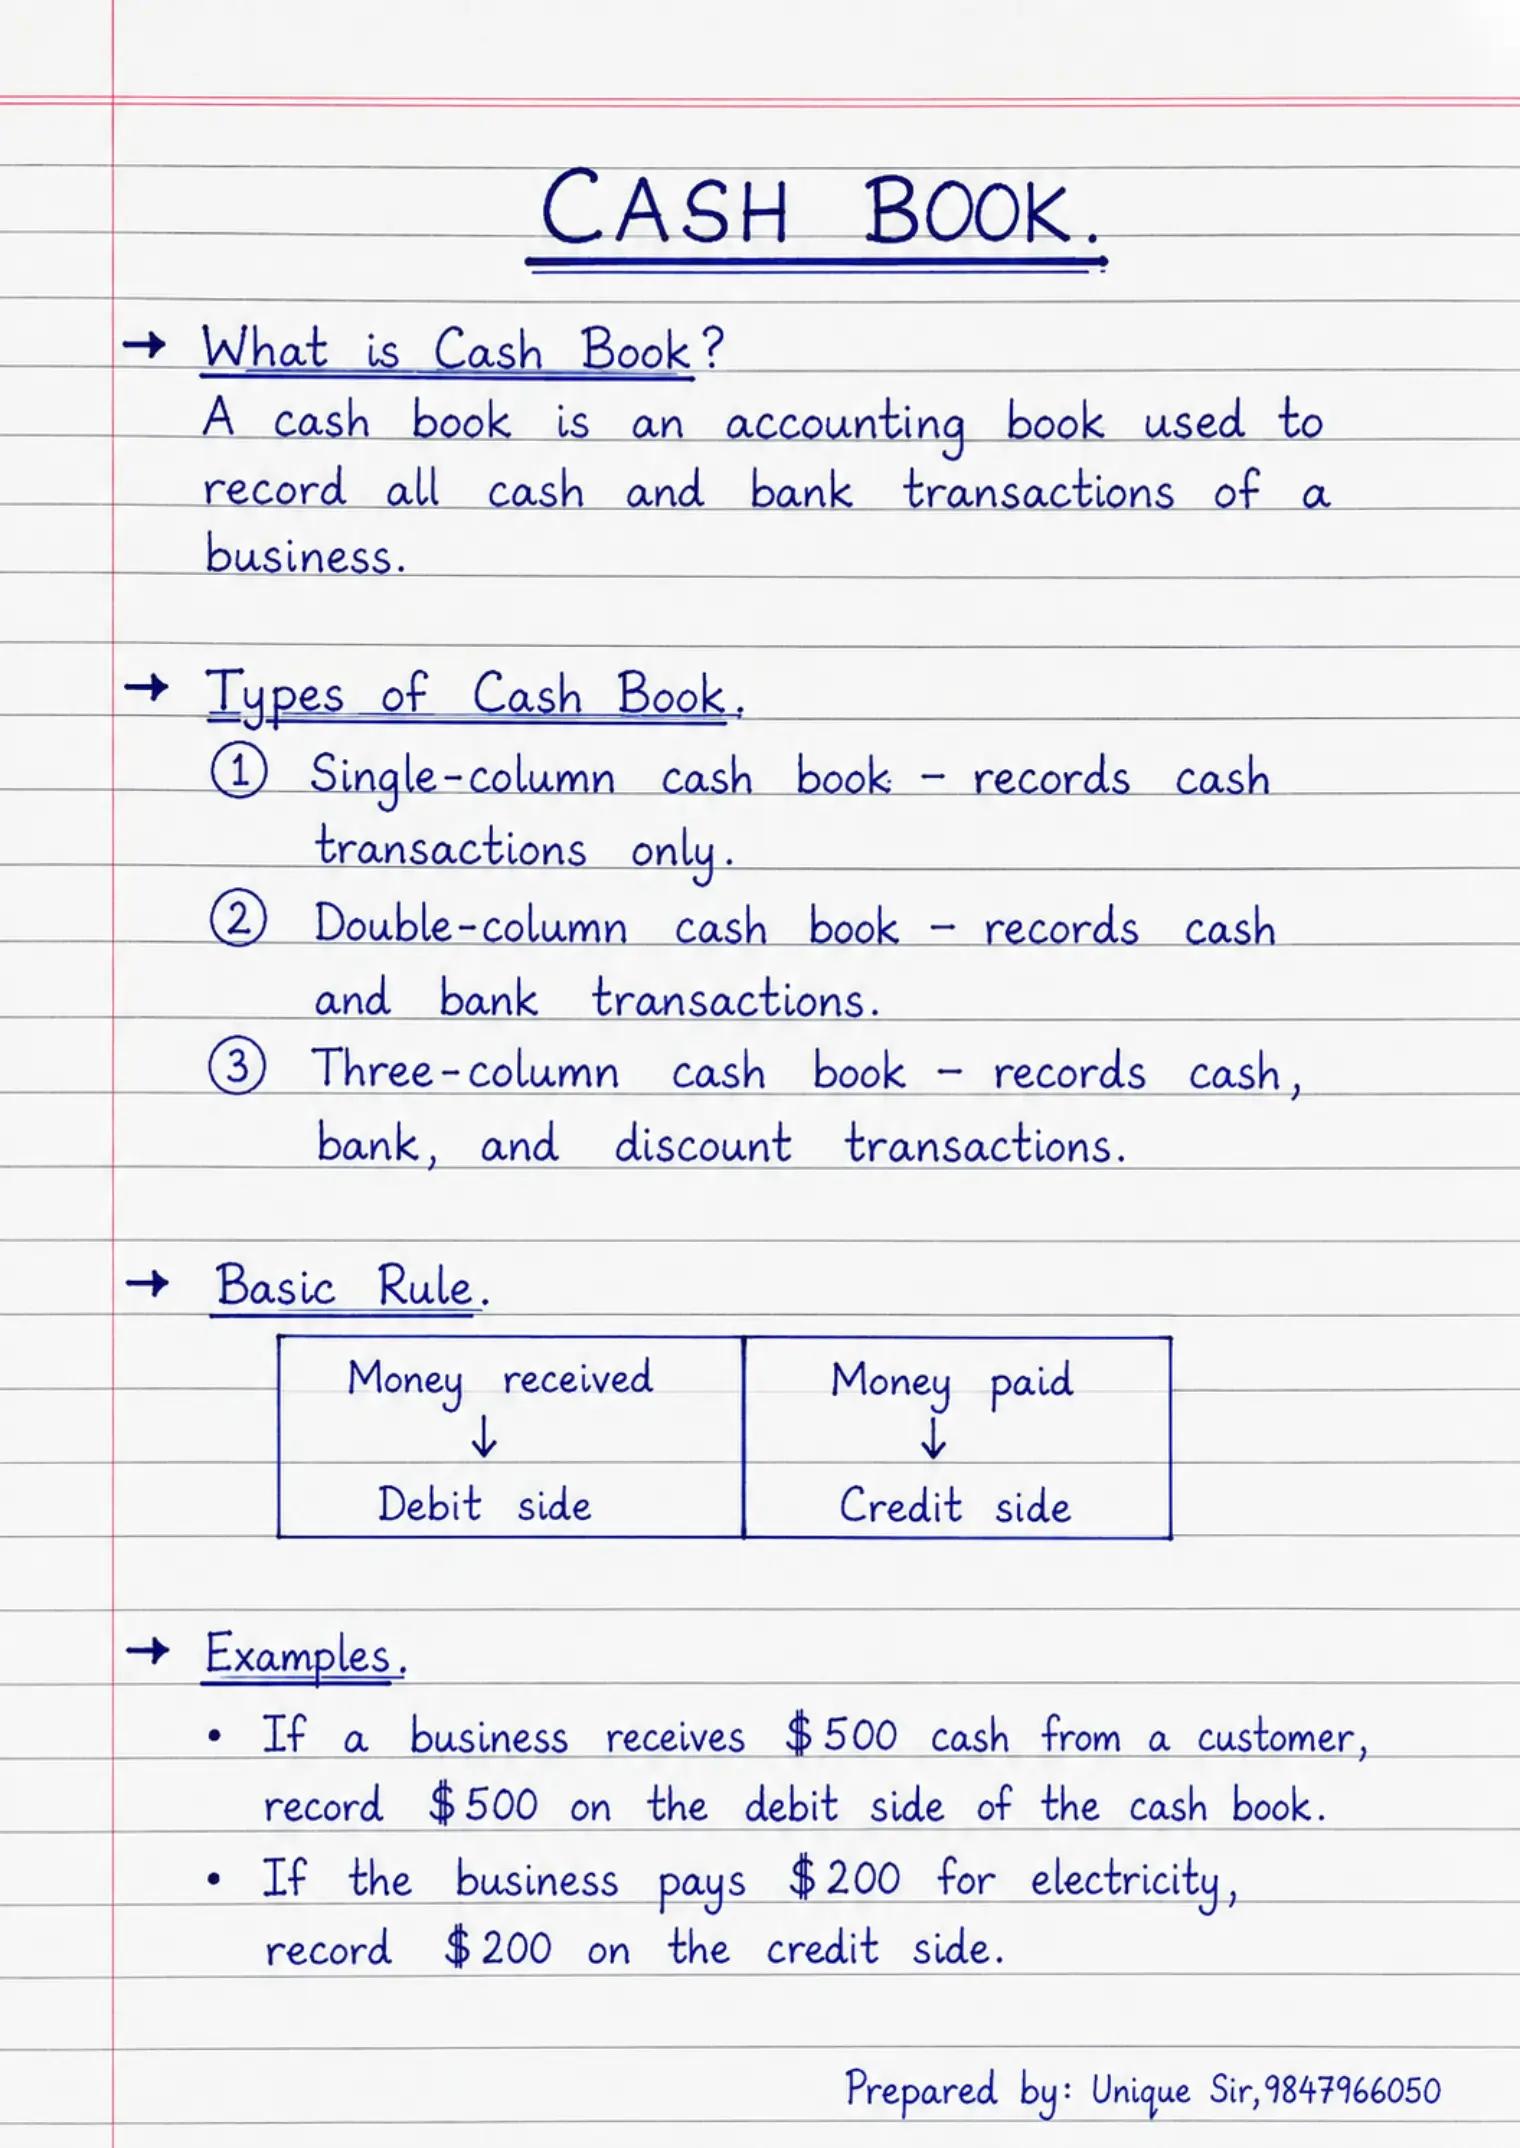 CASH BOOK.
→ What is Cash Book?
A cash book is an accounting book used to
record all cash and bank transactions of a
business.
→ Types of Cash Book.
① Single-column cash book - records cash
transactions only.
② Double-column cash book - records cash
and bank transactions.
③ Three-column cash book - records cash,
bank, and discount transactions.
→ Basic Rule.
Money received Money paid
↓ ↓
Debit side Credit side
→ Examples.
• If a business receives $500 cash from a customer,
record $500 on the debit side of the cash book.
• If the business pays $200 for electricity,
record $200 on the credit side.
Prepared by: Unique Sir,9847966050